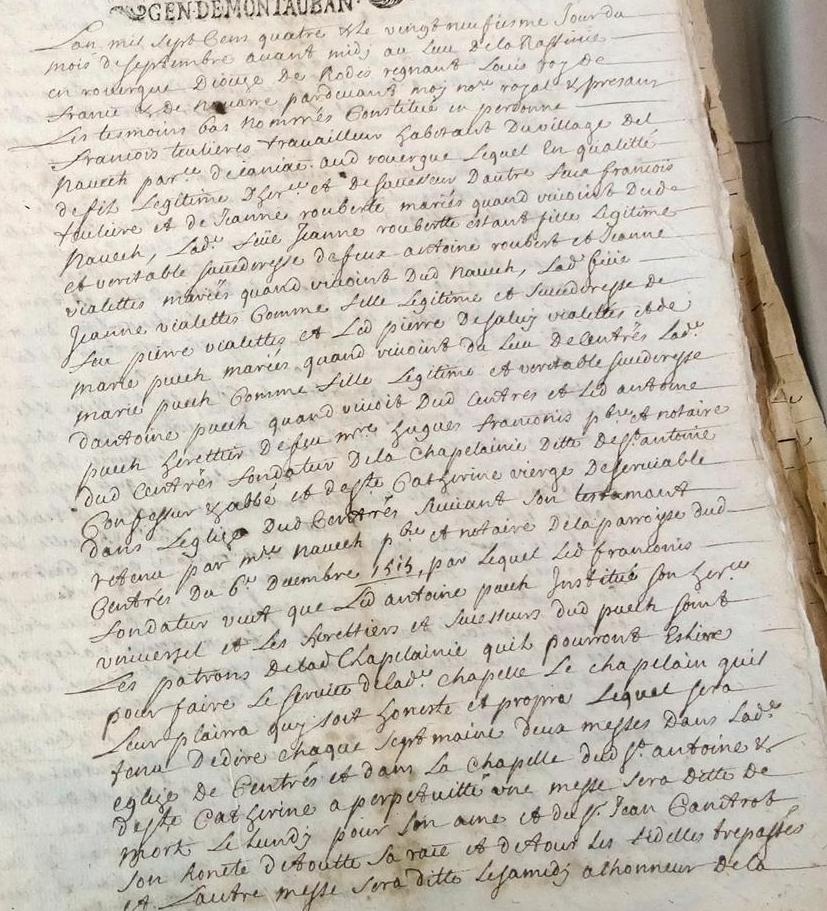 GEN. DE MONTAUBAN
Lan mil sept Cens quatre & le vingt neufiesme Jour du
mois de septembre avant midj au Lieu de la Raffinie
en rouergue Dioceze de Rodés regnant Louis roy de
france & de navarre pardevant moy nore royal & presans
Les tesmoins bas nommés Constitué en perdonne
francois teulieres travailleur habitant du village del
naucch parce de aud rouergue Lequel En qualitté
de filz Legitime Dherer et de successeur Dautre feux francois
teuliere et de Jeanne rouberte mariés quand vivoint dud
Naucch, Lade feüe Jeanne rouberte estant fille Legitime
et veritable succederesse de feux antoine roubert et Jeanne
vialettes mariés quand vivoint Dud naucch, Lade feüe
Jeanne vialettes Comme fille Legitime et succederesse de
feu pierre vialettes et Led pierre De vialettes et de
marie puech mariés quand vivoint du Lieu de Centrés Lade
marie puech Comme fille Legitime et veritable succederesse
dantoine puech quand vivoit Dud Centrés et Led antoine
puech herettier De feu mre hugues franconis pbre et notaire
dud Centrés fondateur De la Chapelainie Ditte de st antoine
Confesseur & abbé et de ste Catherine vierge Deserviable
dans Leglize Dud Centrés suivant son testamant
retenu par mre naucch pbre et notaire de la parroisse dud
Centrés Du 6e Decembre 1515, par Lequel Led franconis
fondateur veut que Led antoine puech Institué son herer
universel et Les herettiers et sucesseurs dud puech soint
Les patrons de lad Chapelainie quil pourront Eslire
pour faire Le service de lade Chapelle Le chapelain quil
Leur plairra quy soit honeste et propre Lequel sera
tenu De dire chaque sept maine deux messes Dans Lade
eglize de Centrés et dans La chapelle dud st antoine &
de ste Catherine a perpetuitté une messe sera ditte de
mort Le Lundj pour son ame et du sr Jean Cantrot
son honcle de toutte sa race et de tour Les fidelles trepassés
et Lautre messe sera ditte Le samedj a lhonneur de la